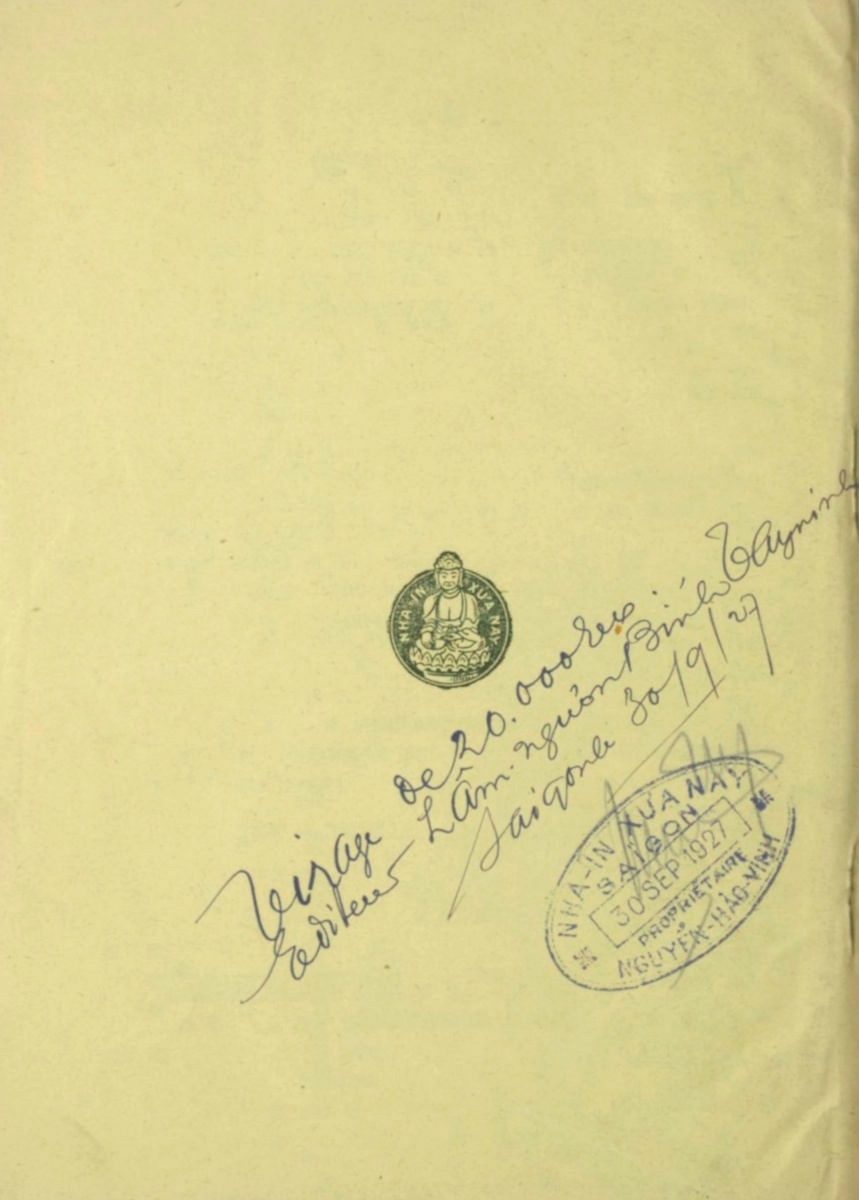 NHÀ-IN XƯA NAY
Tirage de 20.000 ex.
Editeur Lâm-nguôn Bính Tayninh
Saigon le 30/9/27
NHÀ-IN XƯA NAY
SAÏGON
30 SEP 1927
PROPRIÉTAIRE
NGUYỄN-HÁO-VĨNH